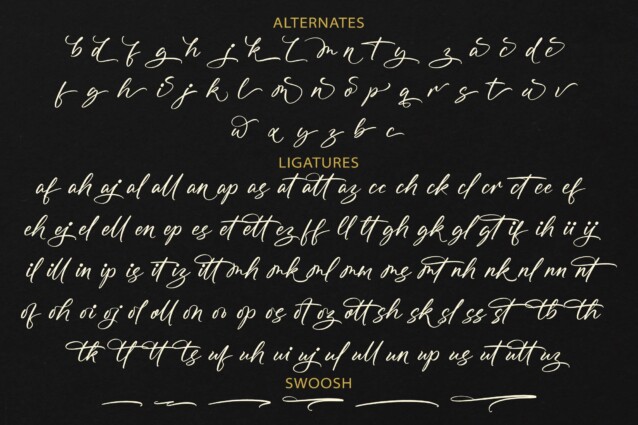 ALTERNATES
b d f g h j k l m n t y z a c d e
f g h i j k l m n o p q r s t u v
w x y z b c
LIGATURES
af ah aj al all an ap as at att az cc ch ck cl cr ct ee ef
eh ej el ell en ep es et ett ez ff ll lt gh gk gl gt if ih ii ij
il ill in ip is it iz itt mh mk ml mm ms mt nh nk nl nn nt
of oh oi oj ol oll on oo op os ot oz ott sh sk sl ss st tb th
tk tf tt ts uf uh ui uj ul ull un up us ut utt uz
SWOOSH